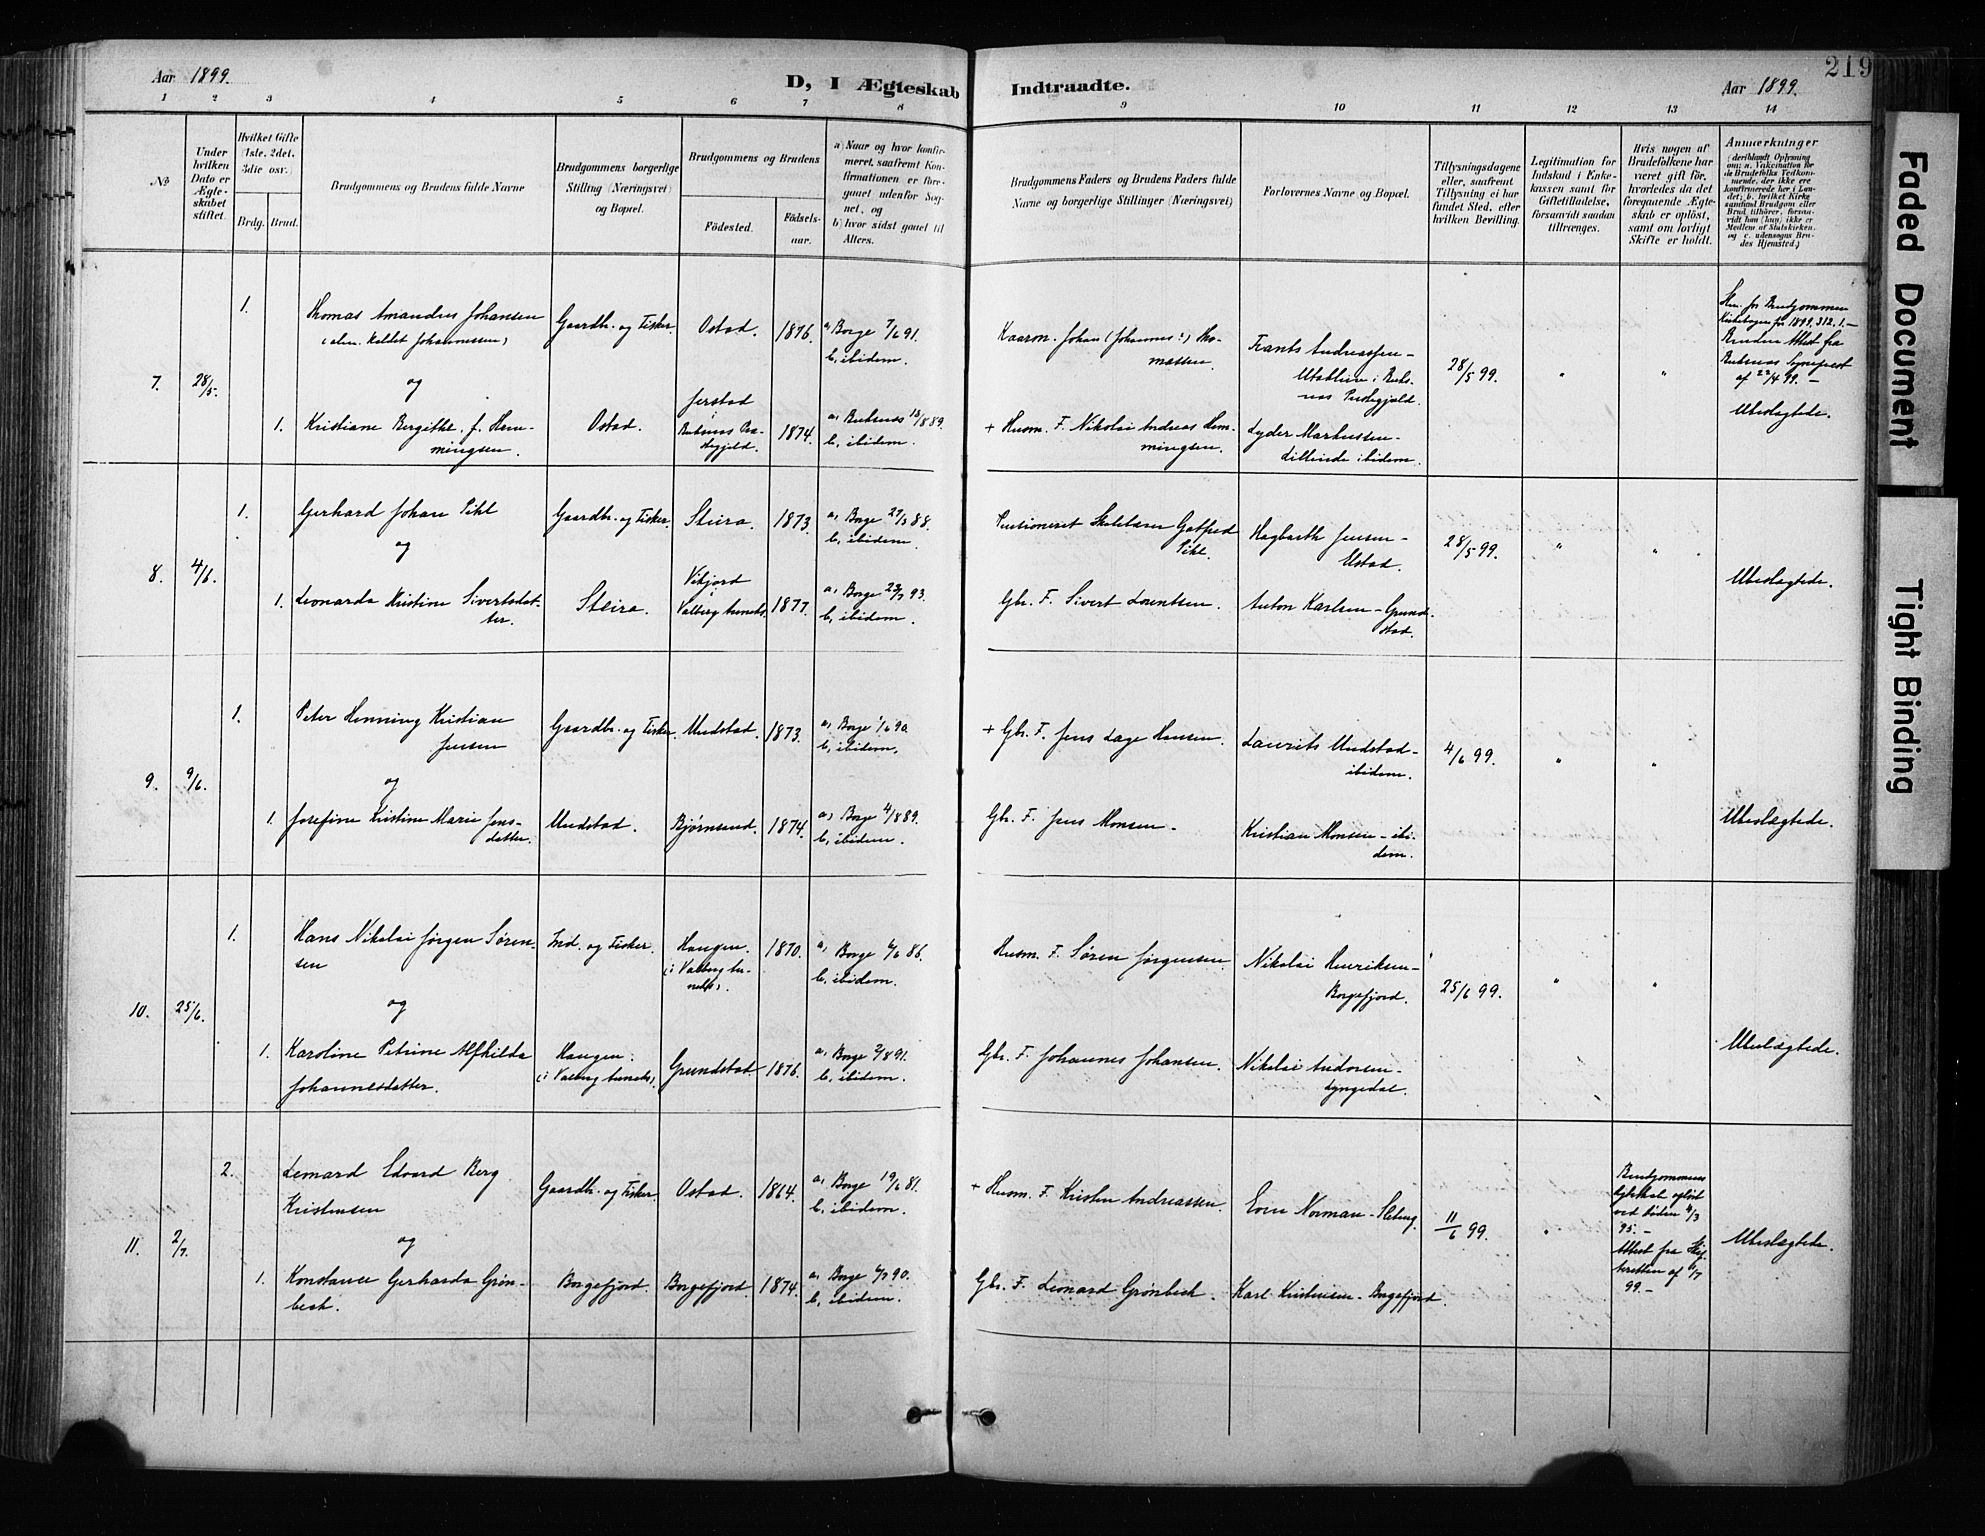 Aar 1899.
D, I Ægteskab Indtraadte.
Aar 1899.
219
1 2 3 4 5 6 7 8 9 10 11 12 13 14
No
Under hvilken Dato er Ægteskabet stiftet.
Hvilket Gifte (1ste, 2det, 3die osv.)
Brdg. Brud.
Brudgommens og Brudens fulde Navne
Brudgommens borgerlige Stilling (Næringsvei) og Bopæl.
Brudgommens og Brudens
Fødested.
Fødselsaar.
a) Naar og hvor konfirmeret, saafremt Konfirmationen er foregaaet udenfor Sognet, og
b) hvor sidst gaaet til Alters.
Brudgommens Faders og Brudens Faders fulde Navne og borgerlige Stillinger (Næringsvei)
Forlovernes Navne og Bopæl.
Tillysningsdagene eller, saafremt Tillysning ei har fundet Sted, efter hvilken Bevilling.
Legitimation for Indskud i Enkekassen samt for Giftetilladelse, forsaavidt saadan tiltrænges.
Hvis nogen af Brudefolkene har været gift før, hvorledes da det foregaaende Ægteskab er opløst, samt om lovligt Skifte er holdt.
Anmærkninger (deriblandt Oplysning om: a. Vakcination for de Brudefolks Vedkommende, der ikke ere konfirmerede her i Landet; b. hvilket Kirkesamfund Brudgom eller Brud tilhører, forsaavidt han (hun) ikke er Medlem af Statskirken, og c. udensogns Brudes Hjemsted.)
7. 28/5.
1. Thomas Amandus Johansen
(alm. kaldet Johannessen)
Gaardbr. og Fisker Ostad. 1876. a, Borge 7/6 91.
b, ibidem.
og
1. Kristiane Bergitte f. Hemmingsen.
Ostad. Jerstad i Buksnes Prestegjeld. 1874. a, Buksnes 18/8 89.
b, ibidem.
Kaarm. Johan (Johannes?) Thomassen.
Frants Andreassen - i Buksnes Prestegjeld.
28/5 99. " "
Brudens Attest fra Buksnes Sogneprest af 22/4 99. -
Ubeslægtede.
+ Husm. F. Nikolai Andreas Hemmingsen.
Lyder Markussen - Lilleeide ibidem.
8. 4/6.
1. Gerhard Johan Pihl
Gaardbr. og Fisker. Steira. 1873. a, Borge 29/7 88.
b, ibidem.
og
1. Leonarda Kristine Sivertsdatter.
Steira. Vikjord i Valberg Annex. 1877. a, Borge 23/7 93.
b, ibidem.
Pensioneret Skolelærer Gotfred Pihl.
Hagbarth Jensen - Ustad.
28/5 99. " "
Gbr. F. Sivert Lorentsen.
Anton Karlsen - Grundstad.
Ubeslægtede.
9. 9/6.
1. Peter Henning Kristian Jensen
Gaardbr. og Fisker. Undstad. 1873. a, Borge 1/6 90.
b, ibidem.
og
1. Josefine Kristine Marie Jensdatter.
Undstad. Bjørnsand. 1874. a, Borge 4/8 89.
b, ibidem.
+ Gbr. F. Jens Lage Hansen.
Laurits Undstad - ibidem.
4/6 99. " "
Gbr. F. Jens Monsen -
Kristian Monsen - ibidem.
Ubeslægtede.
10. 25/6.
1. Hans Nikolai Jørgen Sørensen
Ind. og Fisker. Haugen (i Valberg Annex). 1870. a, Borge 6/6 86.
b, ibidem.
og
1. Karoline Petrine Alfhilda Johannesdatter.
Haugen. (i Valberg Annex). Grundstad 1876. a, Borge 2/8 91.
b, ibidem.
Husm. F. Søren Jørgensen.
Nikolai Henriksen - Borgefjord.
25/6 99. " "
Gbr. F. Johannes Johansen.
Nikolai Andorsen - Lyngedal.
Ubeslægtede.
11. 2/7.
2. Lenard Edvard Berg Kristensen
Gaardbr. og Fisker. Ostad. 1864. a, Borge 19/6 81.
b, ibidem.
og
1. Konstance Gerharda Grønbeck.
Borgefjord. Borgefjord. 1874. a, Borge 6/7 90.
b, ibidem.
+ Husm. F. Kristen Andreassen.
Even Norman -
11/6 99. "
Brudgommens Egteskab opløst ved Døden 4/3 95. -
Attest fra Skifteretten af 1/7 99. -
Gbr. F. Leonard Grønbeck.
Karl Kristensen - Borgefjord.
Ubeslægtede.
Faded Document
Tight Binding